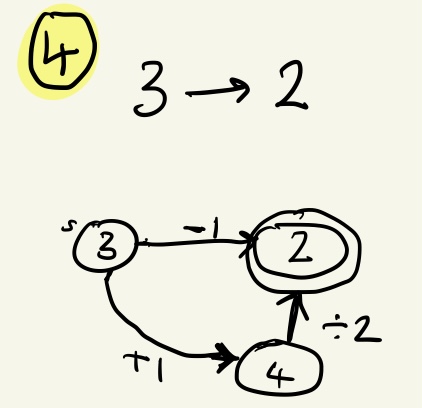 4
3 → 2
s 3 -1 2
+1 4 ÷2